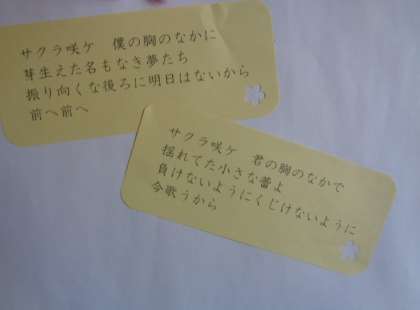 サクラ咲ケ　僕の胸のなかに
芽生えた名もなき夢たち
振り向くな後ろに明日はないから
前へ前へ
サクラ咲ケ　君の胸のなかで
揺れてた小さな蕾よ
負けないようにくじけないように
今歌うから